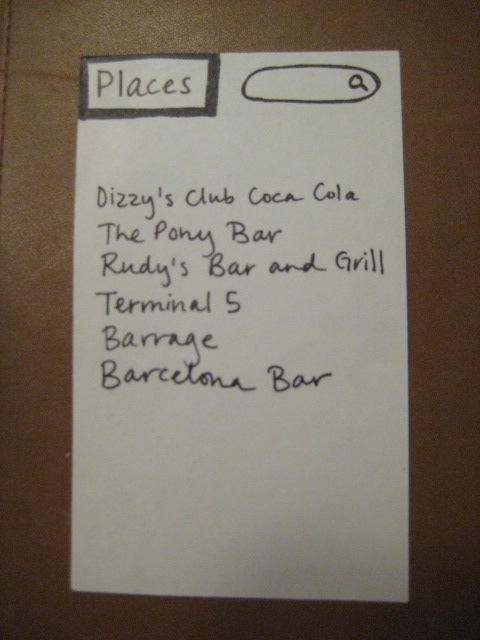 Places
Dizzy's Club Coca Cola
The Pony Bar
Rudy's Bar and Grill
Terminal 5
Barrage
Barcelona Bar